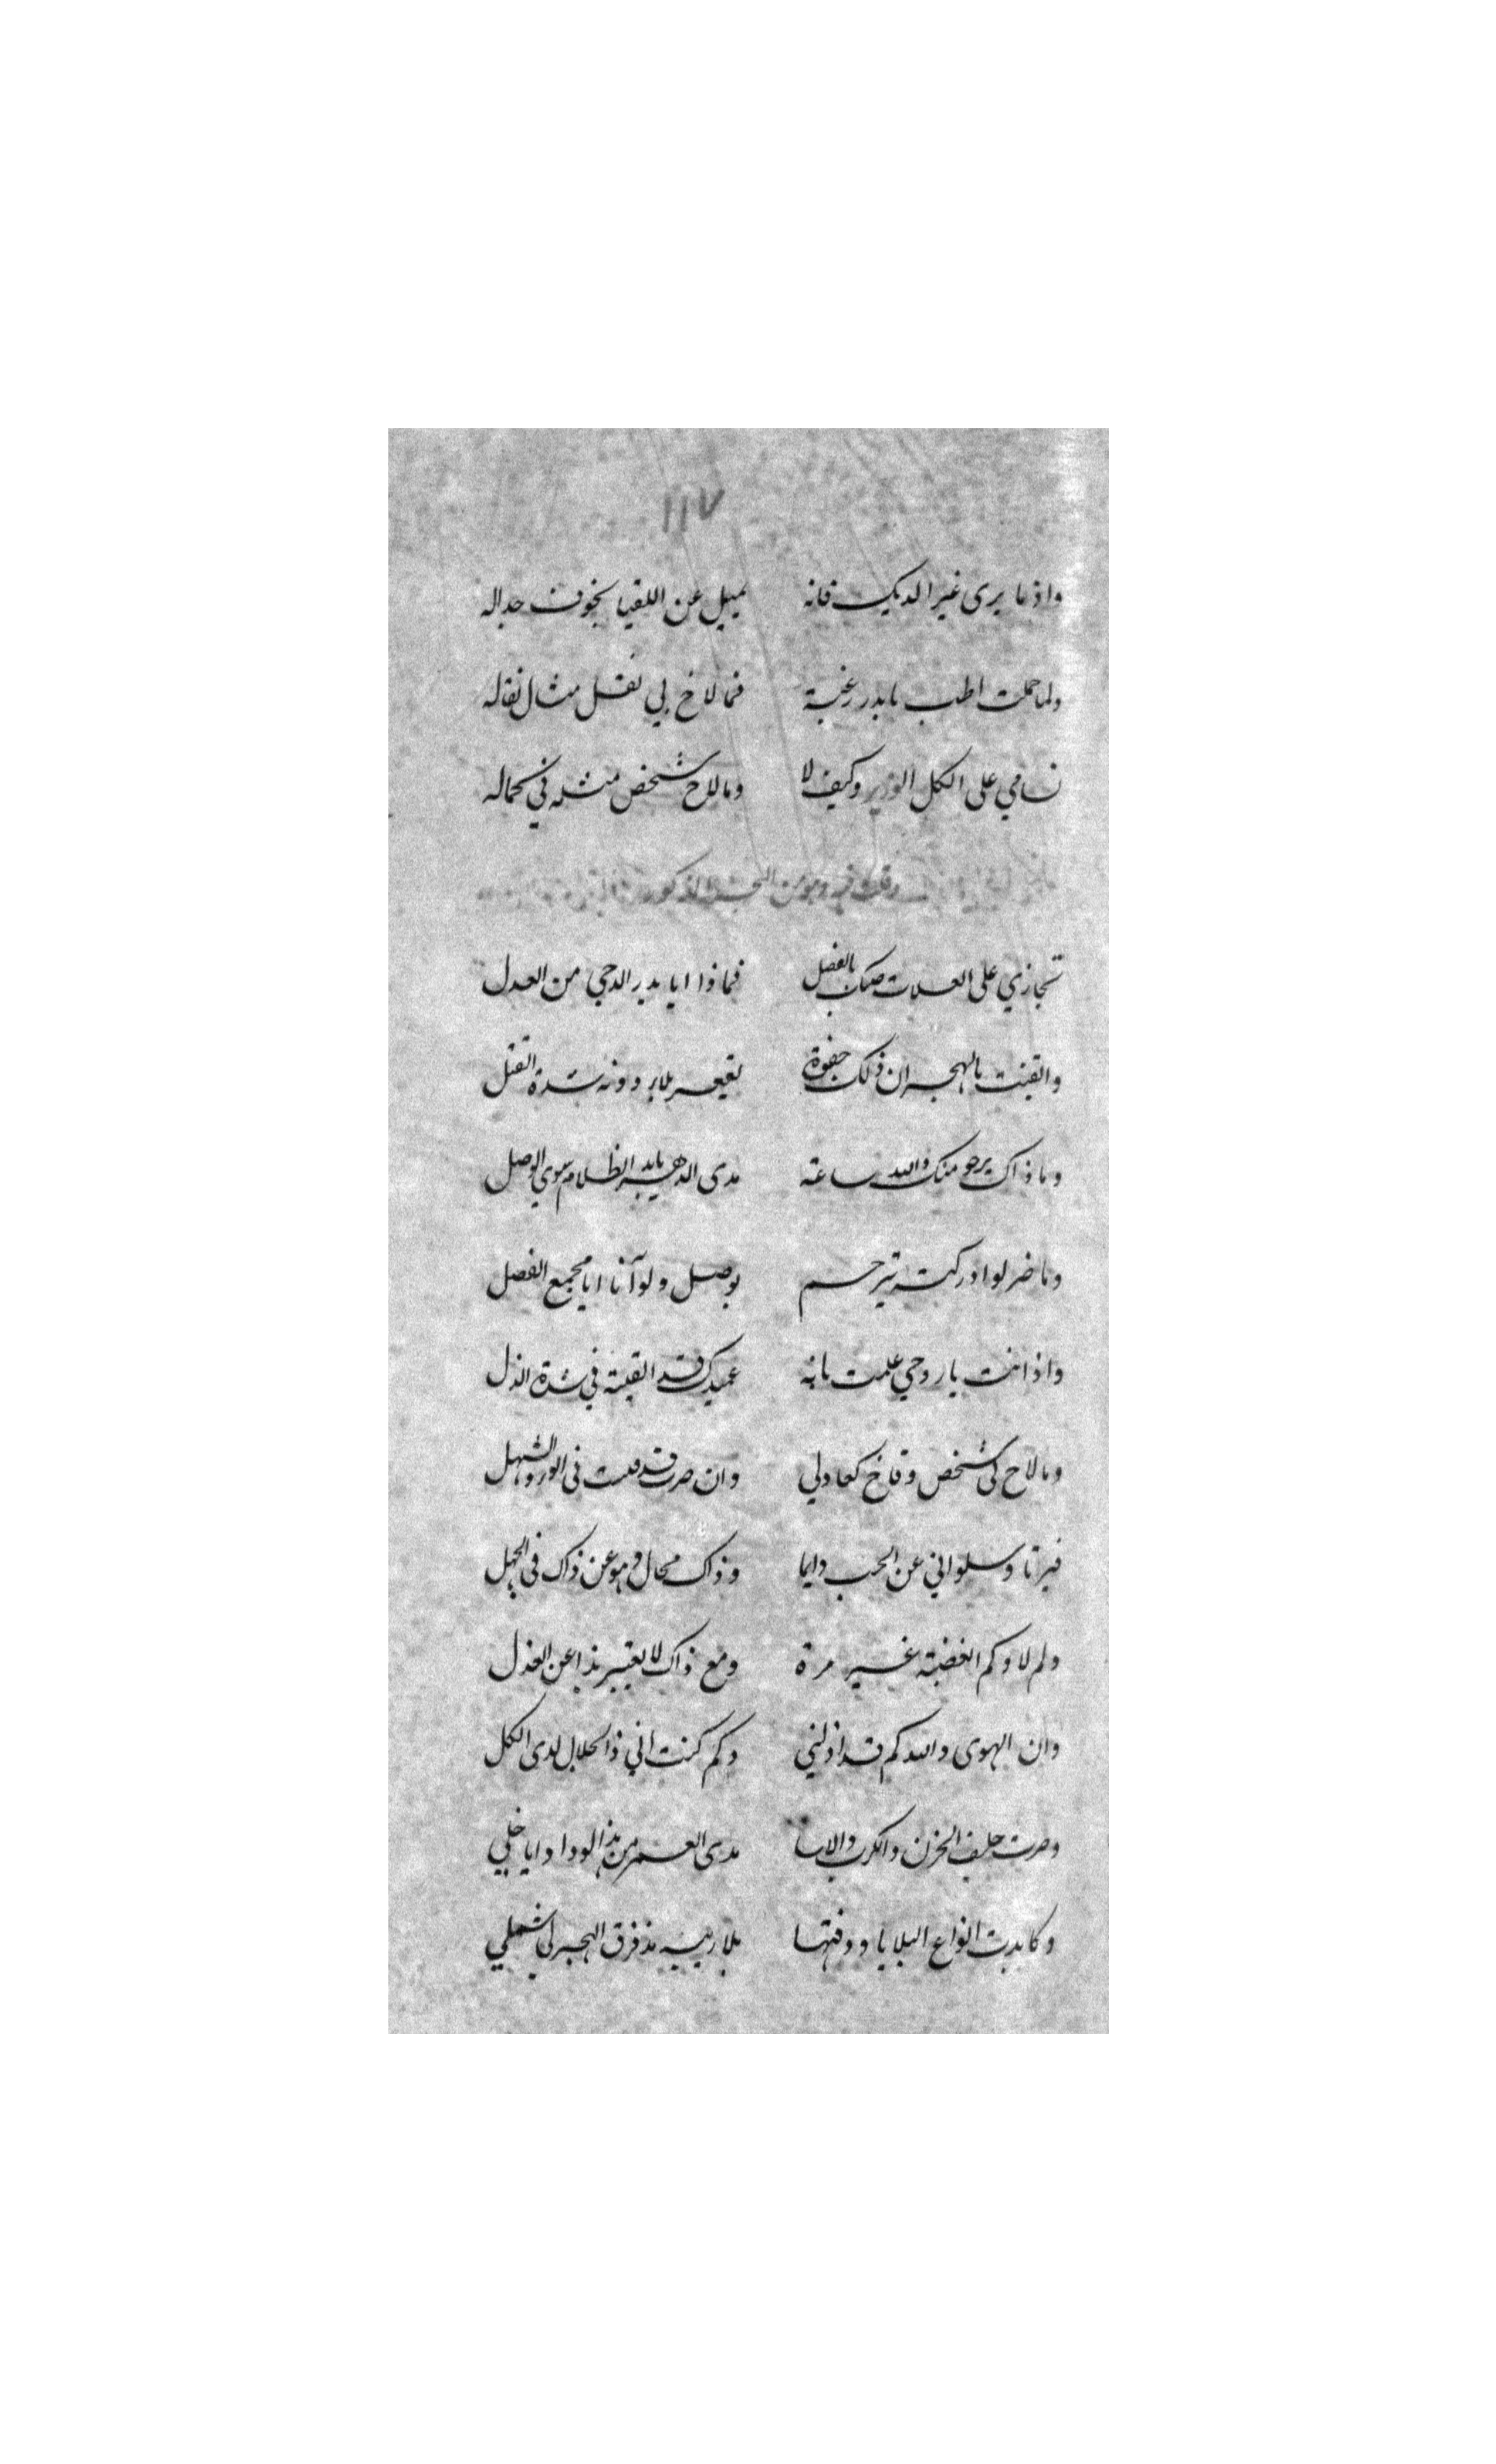 ١١٧
واذ ما يرى غير الديك فانه يميل عن اللقيا بخوف جداله
ولما حملت اطب يا بدر رغبة فما لاخ لي نقل مثال نقاله
تسامي على الكل الوزير وكيف لا وما لاح شخص مثله في كماله
وهو من البحر المذكور
تجازي على العلات صبك بالفضل فماذا ايا بدر الدجي من العدل
والقيت بالهجران ذلك جفوة بقيعر بلابر دونه شدة القتل
وما ذاك يرجو منك والله ساعة مدى الدهر يا بدر الظلام سوي الوصل
وما ضر لو ادركته بترحم بوصل ولو آنا ايا مجمع الفضل
واذ انت يا روحي علمت بانه عميدك قد القيته في شدة الذل
وما لاح لى شخص وقاخ كعادلي وان صرت قد مت في الورد الشهل
فيرتا وسلواني عن الحب دايما وذاك محال وهو عن ذاك فى الجهل
ولم لا وكم اغضبته غير مرة ومع ذاك لا يقتر بذا عن العذل
وان الهوى والله كم قد اذلني وكم كنت اني ذا الجلال لدى الكل
وصرت حليف الحزن والكرب والاسا مدى العمر من هذا الوداد ايا خلي
وكابدت انواع البلايا وذقتها بلا ريبة مذ فرق الهجر لي شملي